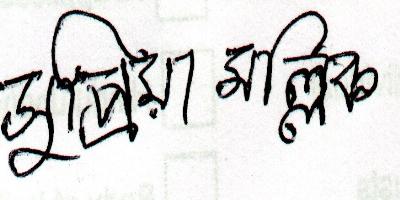 সুপ্রিয়া মল্লিক